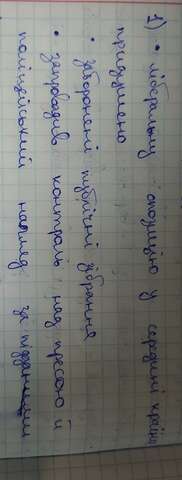 1) • ліберальну опозицію у середині країни
придушено
• заборонені публічні зібрання
• запровадив контроль над пресою й
поліцейський нагляд за підданими